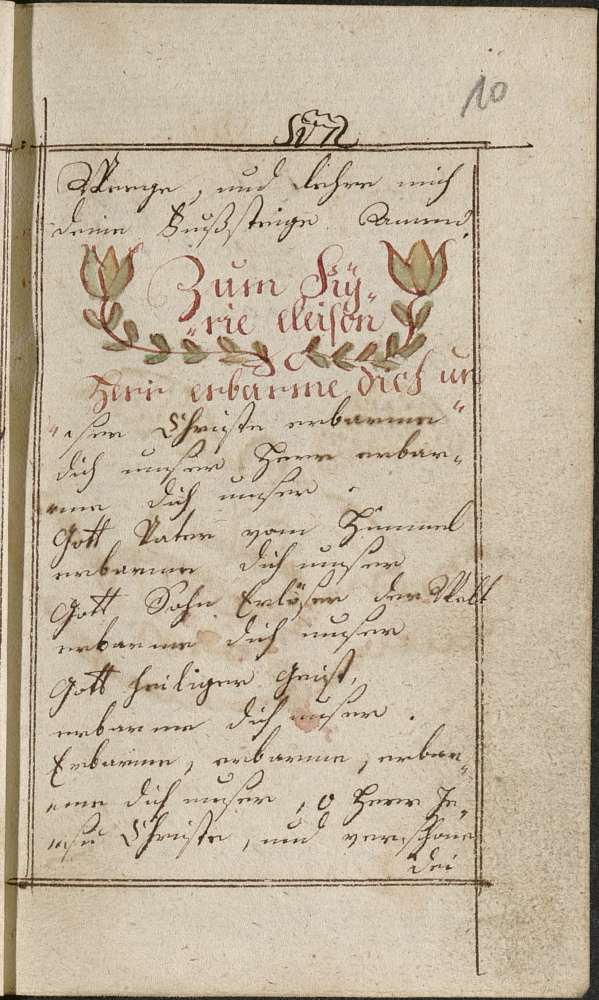 10
Weege, und lehre mich
deine Fußsteige Amen.
Zum Ky„
„rie eleison
Herr erbarme dich un
„ser Christe erbarme
dich unser Herr erbar„
„me dich unser.
Gott Vater vom Himmel
erbarme dich unser
Gott Sohn Erlöser der Welt
erbarme dich unser
Gott heiliger Geist,
erbarme dich unser.
Erbarme, erbarme, erbar„
„me dich unser, o Herr Je„
„su Christe, und verschone
dei